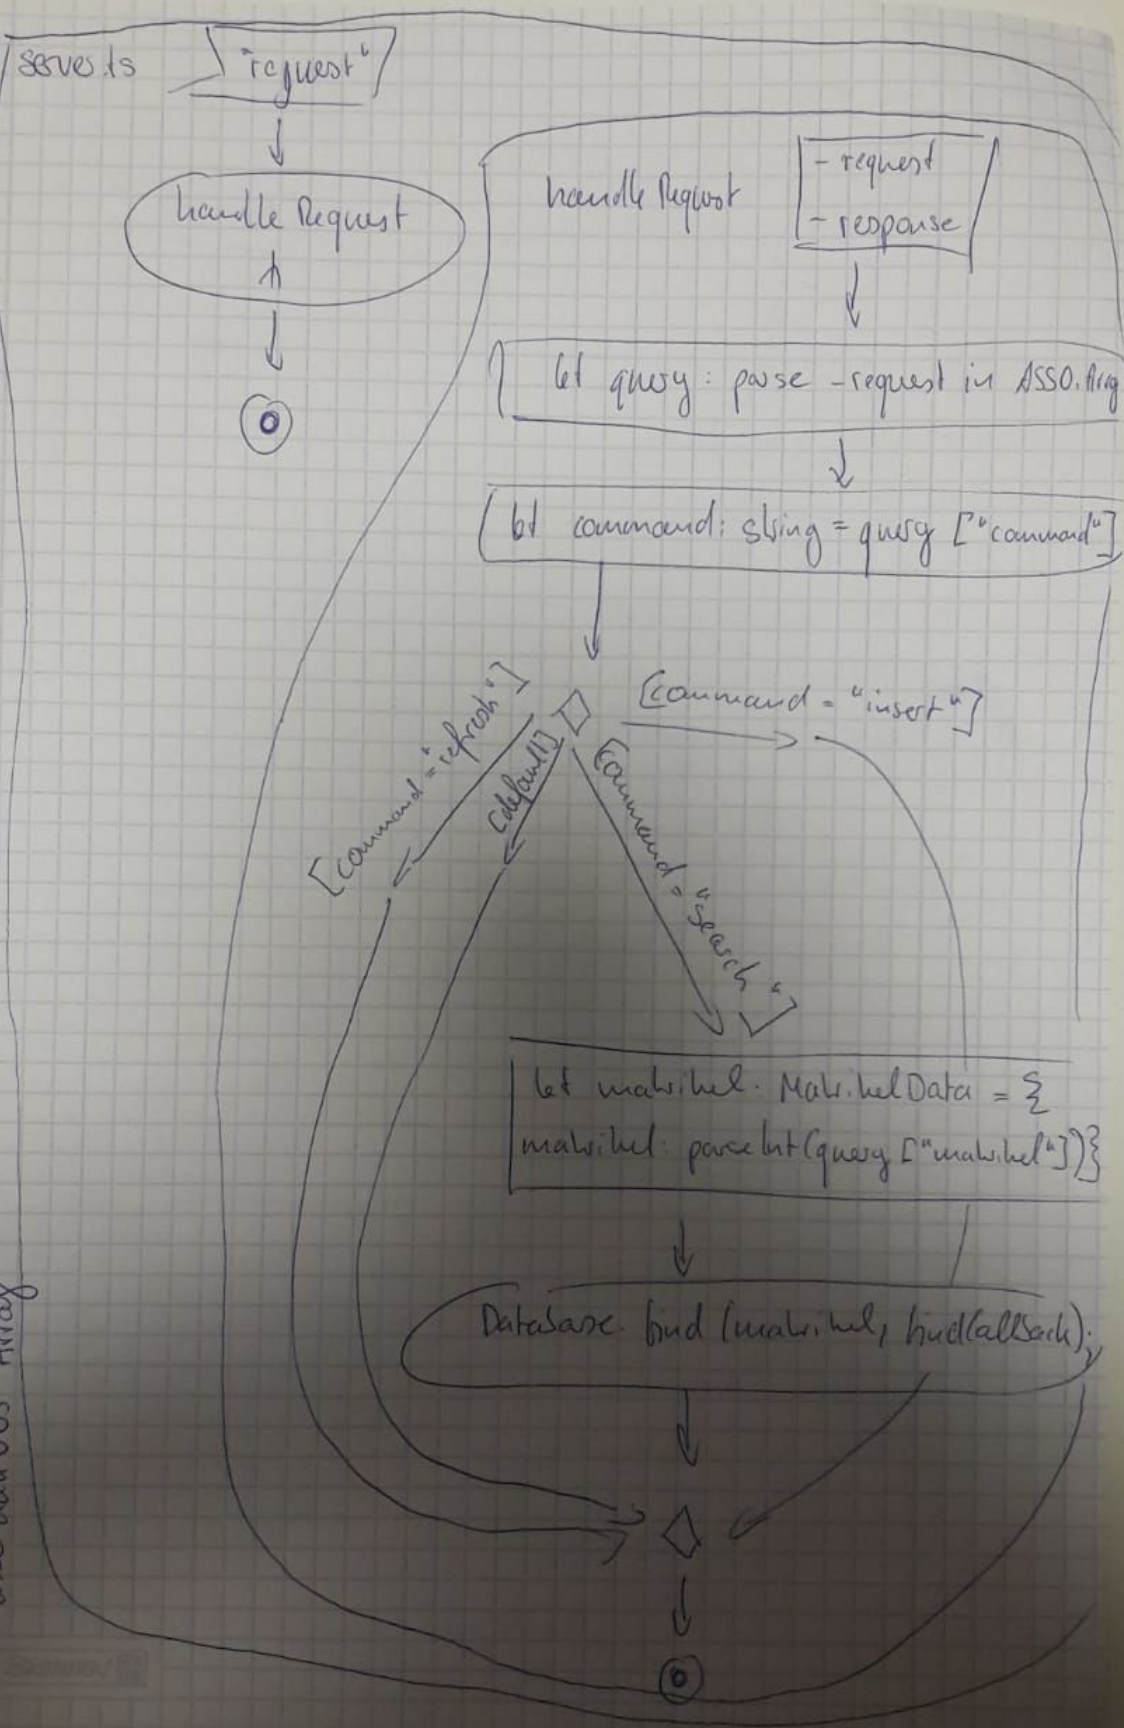 server.ts
"request"
handle Request
handle Request
- request
- response
let query: parse -request in ASSO. Array
let command: string = query ["command"]
[command = "insert"]
[command = "refresh"]
[default]
[command = "search"]
let matrikel: MatrikelData = {
matrikel: parseInt(query ["matrikel"])}
Database. find (matrikel, findCallback);
Array